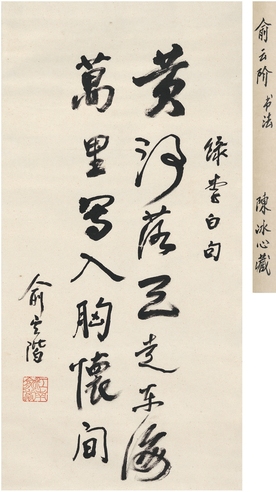 俞云阶书法 陳冰心藏
録李白句
黄河落天走东海
萬里写入胸懷间
俞云階